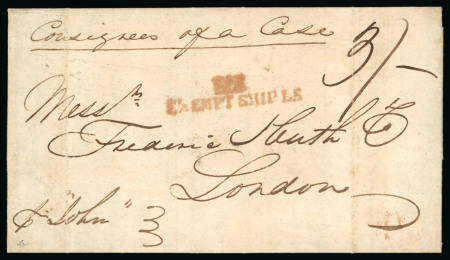 Consignees of a Case
3/-
EXEMPT SHIP LE
Messrs
Frederic Huth & Co
London
p "John"